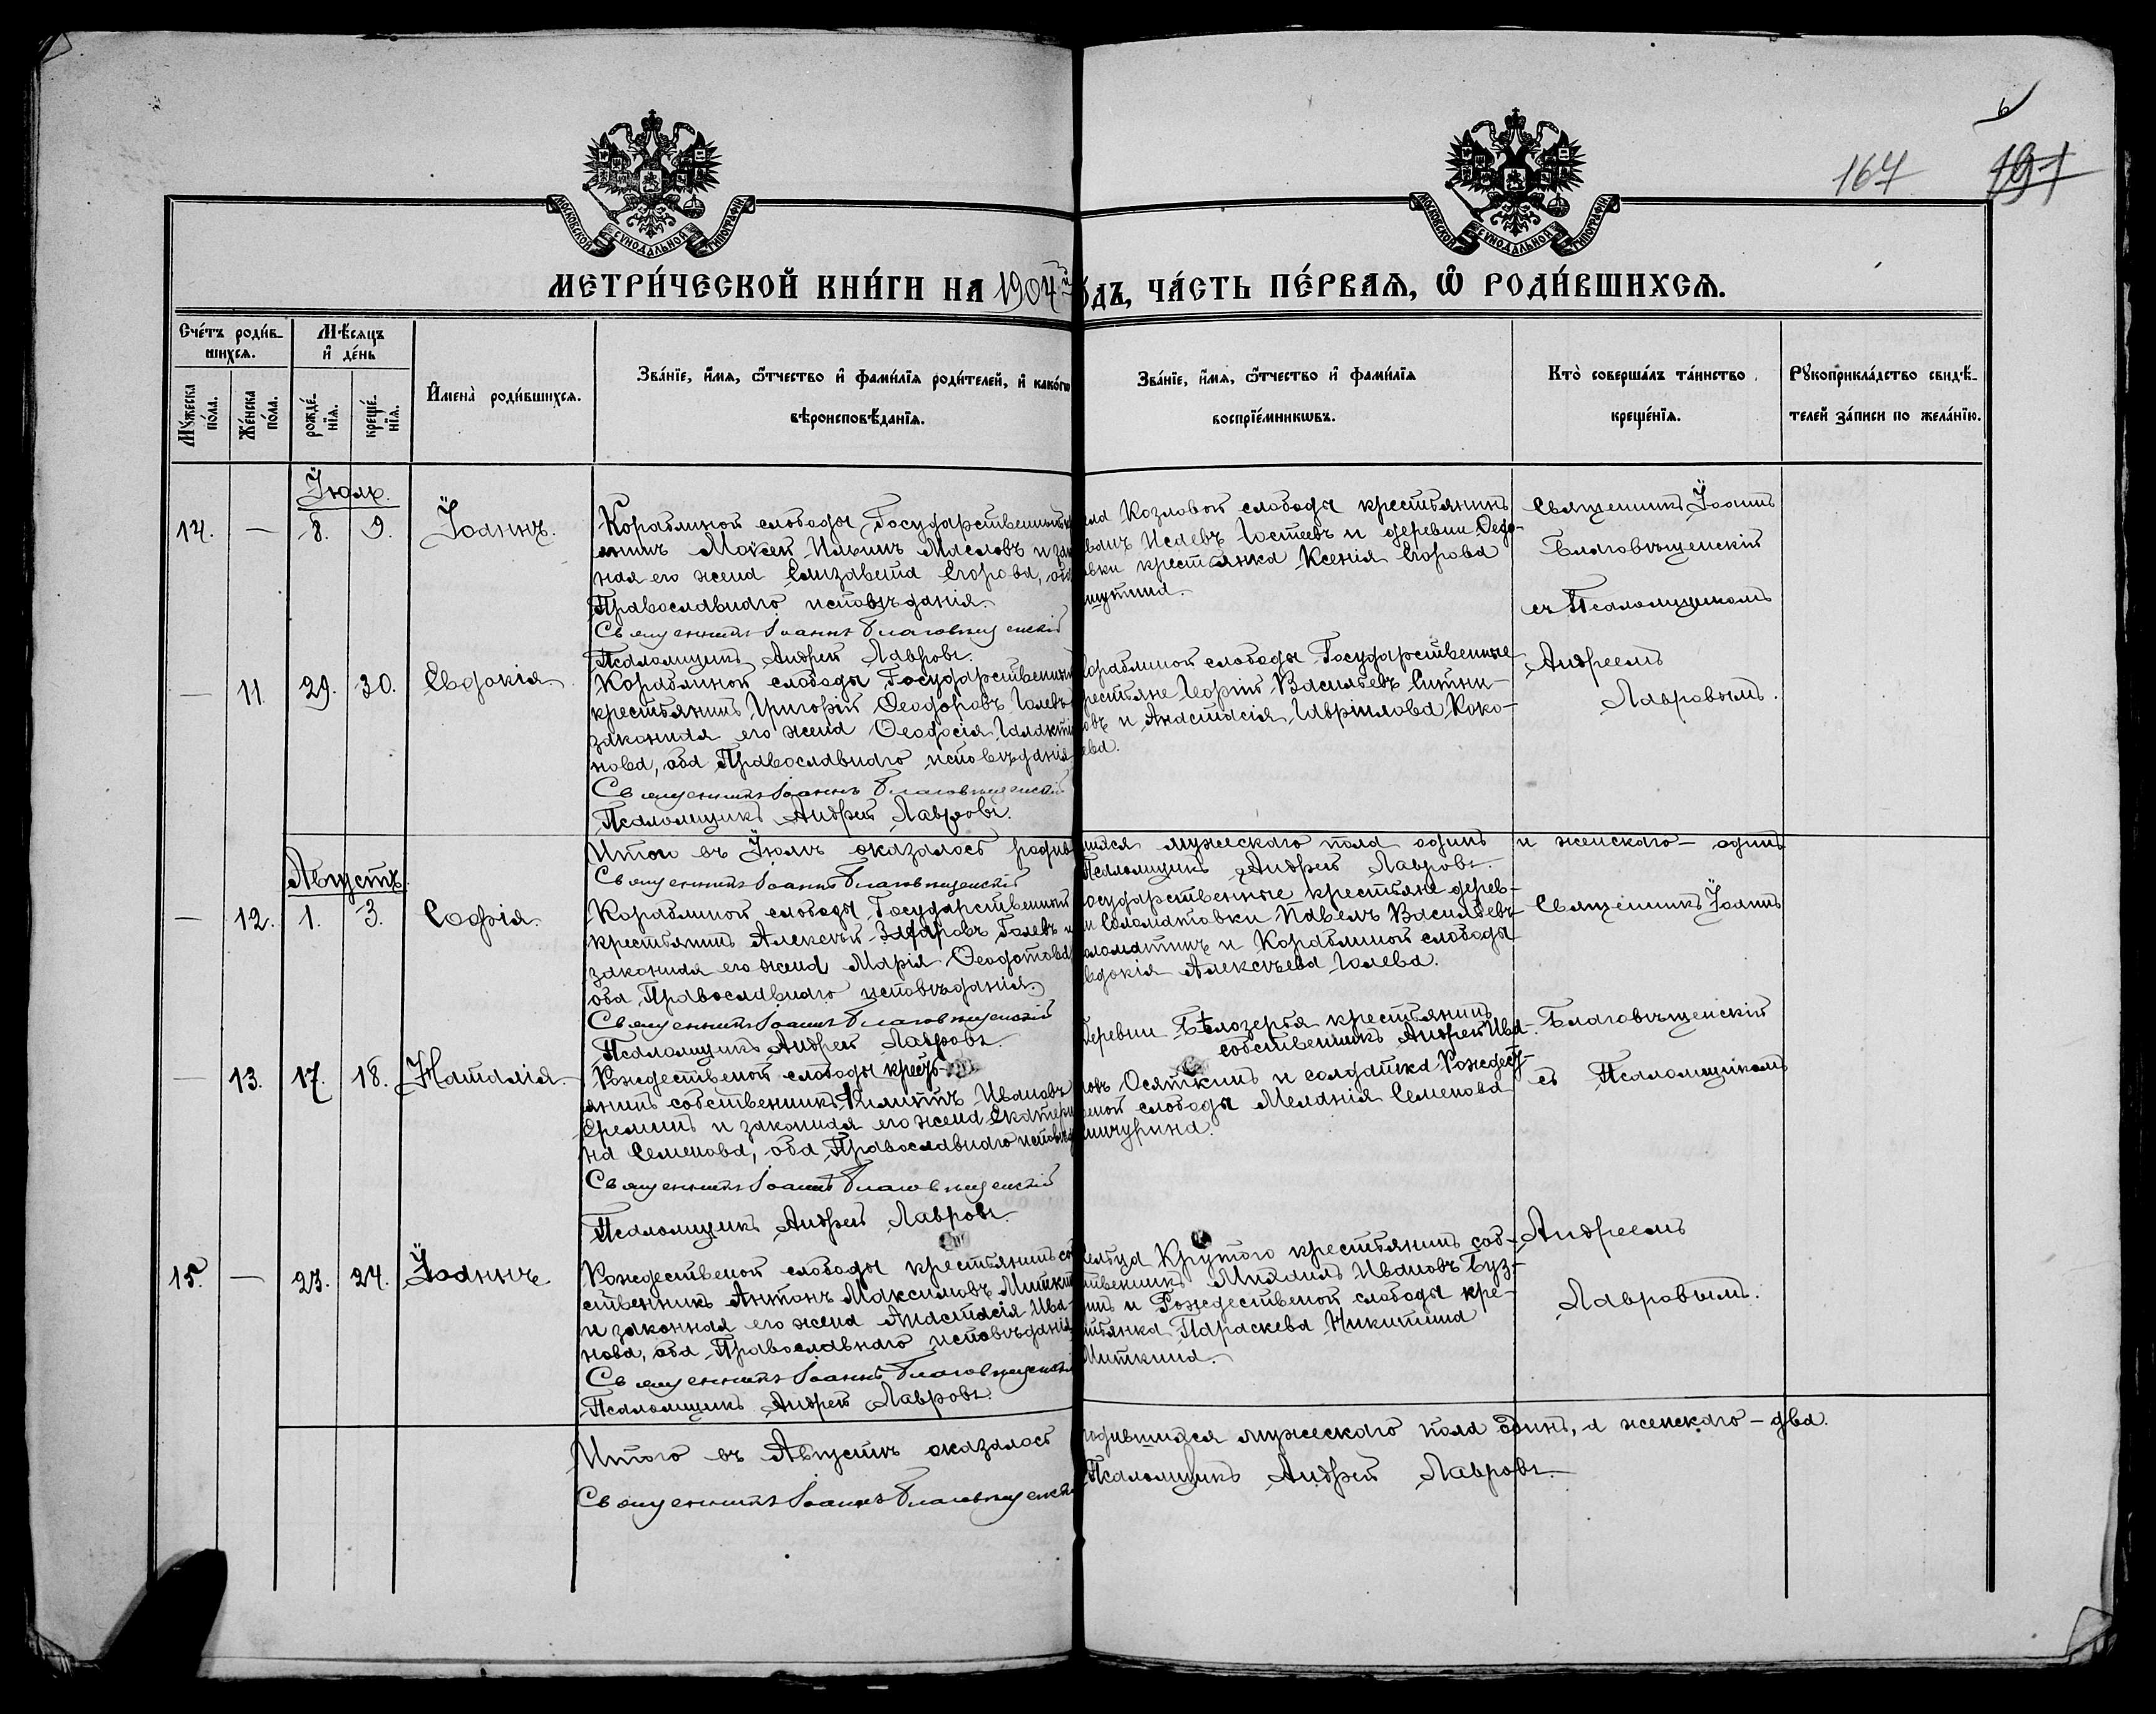 6
167 191
МОСКОВСКОЙ СѴНОДАЛЬНОЙ ТИПОГРАФІИ
МОСКОВСКОЙ СѴНОДАЛЬНОЙ ТИПОГРАФІИ
МЕТРИ́ЧЕСКОЙ КНИ́ГИ НА 1904й
о́дъ, ЧА́СТЬ ПЕ́РВАѦ, Ѡ҆ РОДИ́ВШИХСѦ.
Сче́тъ роди́в-
шихсѧ.
Мѣ́сѧцъ
и҆ де́нь
Мꙋ́жеска
по́ла.
Же́нска
по́ла.
рожде́-
нїѧ.
креще́-
нїѧ.
И҆мена̀ роди́вшихсѧ.
Зва́нїе, и҆́мѧ, ѻ҆́тчество и҆ фами́лїѧ роди́телей, и҆ како́гѡ
вѣроисповѣ́данїѧ.
Зва́нїе, и҆́мѧ, ѻ҆́тчество и҆ фами́лїѧ
воспрїе́мникѡвъ.
Кто̀ соверша́лъ та́инство
креще́нїѧ.
Рꙋкоприкла́дство свидѣ́-
телей за́писи по жела́нїю.
Іюль.
14. — 8. 9. Іоаннъ.
Кораблиной слободы Государственный к
янинъ Моѵсей Ильинъ Масловъ и зак
ная его жена Елизавета Егорова, оба
Православнаго исповѣданія.
Священникъ Іоаннъ Благовѣщенскій
Псаломщикъ Андрей Лавровъ.
ела Козловой слободы крестьянинъ
ванъ Исаевъ Гостеевъ и деревни Ѳедо-
овки крестьянка Ксенія Егорова
шутина.
Священникъ Іоаннъ
Благовѣщенскій
съ Псаломщикомъ
Андреемъ
Лавровымъ.
— 11 29. 30. Евдокія.
Кораблиной слободы Государственный
крестьянинъ Григорій Ѳеодоровъ Голевъ
законная его жена Ѳеодосія Галакті
нова, оба Православнаго исповѣданія
Священникъ Іоаннъ Благовѣщенскій
Псаломщикъ Андрей Лавровъ.
Кораблиной слободы Государственные
рестьяне Георгій Васильевъ Ситни-
овъ и Анастасія Гавріилова Коко-
ева.
Итого въ Іюлѣ оказалось родив
шихся мужескаго пола одинъ и женскаго — одинъ
Священникъ Іоаннъ Благовѣщенскій
Псаломщикъ Андрей Лавровъ.
Августъ.
— 12. 1. 3. Софія.
Кораблиной слободы Государственный
крестьянинъ Алексѣй Захаровъ Голевъ и
законная его жена Марія Ѳеодотова
оба Православнаго исповѣданія.
Священникъ Іоаннъ Благовѣщенскій
Псаломщикъ Андрей Лавровъ.
осударственные крестьяне дерев-
и Соломатовки Павелъ Васильевъ
оломатинъ и Кораблиной слободы
вдокія Алексѣева Голева.
Священникъ Іоаннъ
Благовѣщенскій
съ Псаломщикомъ
Андреемъ
Лавровымъ.
— 13. 17. 18. Наталія.
Рождественой слободы кресть-
янинъ собственникъ Филиппъ Ивановъ
Ереминъ и законная его жена Екатери
на Семенова, оба Православнаго исповѣд
Священникъ Іоаннъ Благовѣщенскій
Псаломщикъ Андрей Лавровъ.
Деревни Бѣлозерья крестьянинъ
собственникъ Андрей Ива-
новъ Осяткинъ и солдатка Рождест-
веной слободы Меланія Семенова
ичурина.
15. — 23. 24. Іоаннъ.
Рождественой слободы крестьянинъ соб
ственникъ Антонъ Максимовъ Миткин
и законная его жена Анастасія Ива-
нова, оба Православнаго исповѣданія
Священникъ Іоаннъ Благовѣщенскій
Псаломщикъ Андрей Лавровъ.
Крутого крестьянинъ соб-
ственникъ Михаилъ Ивановъ Буз-
инъ и Рождественой слободы кре-
стьянка Параскева Никитина
Миткина.
Итого въ Августѣ оказалось
родившихся мужескаго пола одинъ, а женскаго — два.
Священникъ Іоаннъ Благовѣщенскій
Псаломщикъ Андрей Лавровъ.